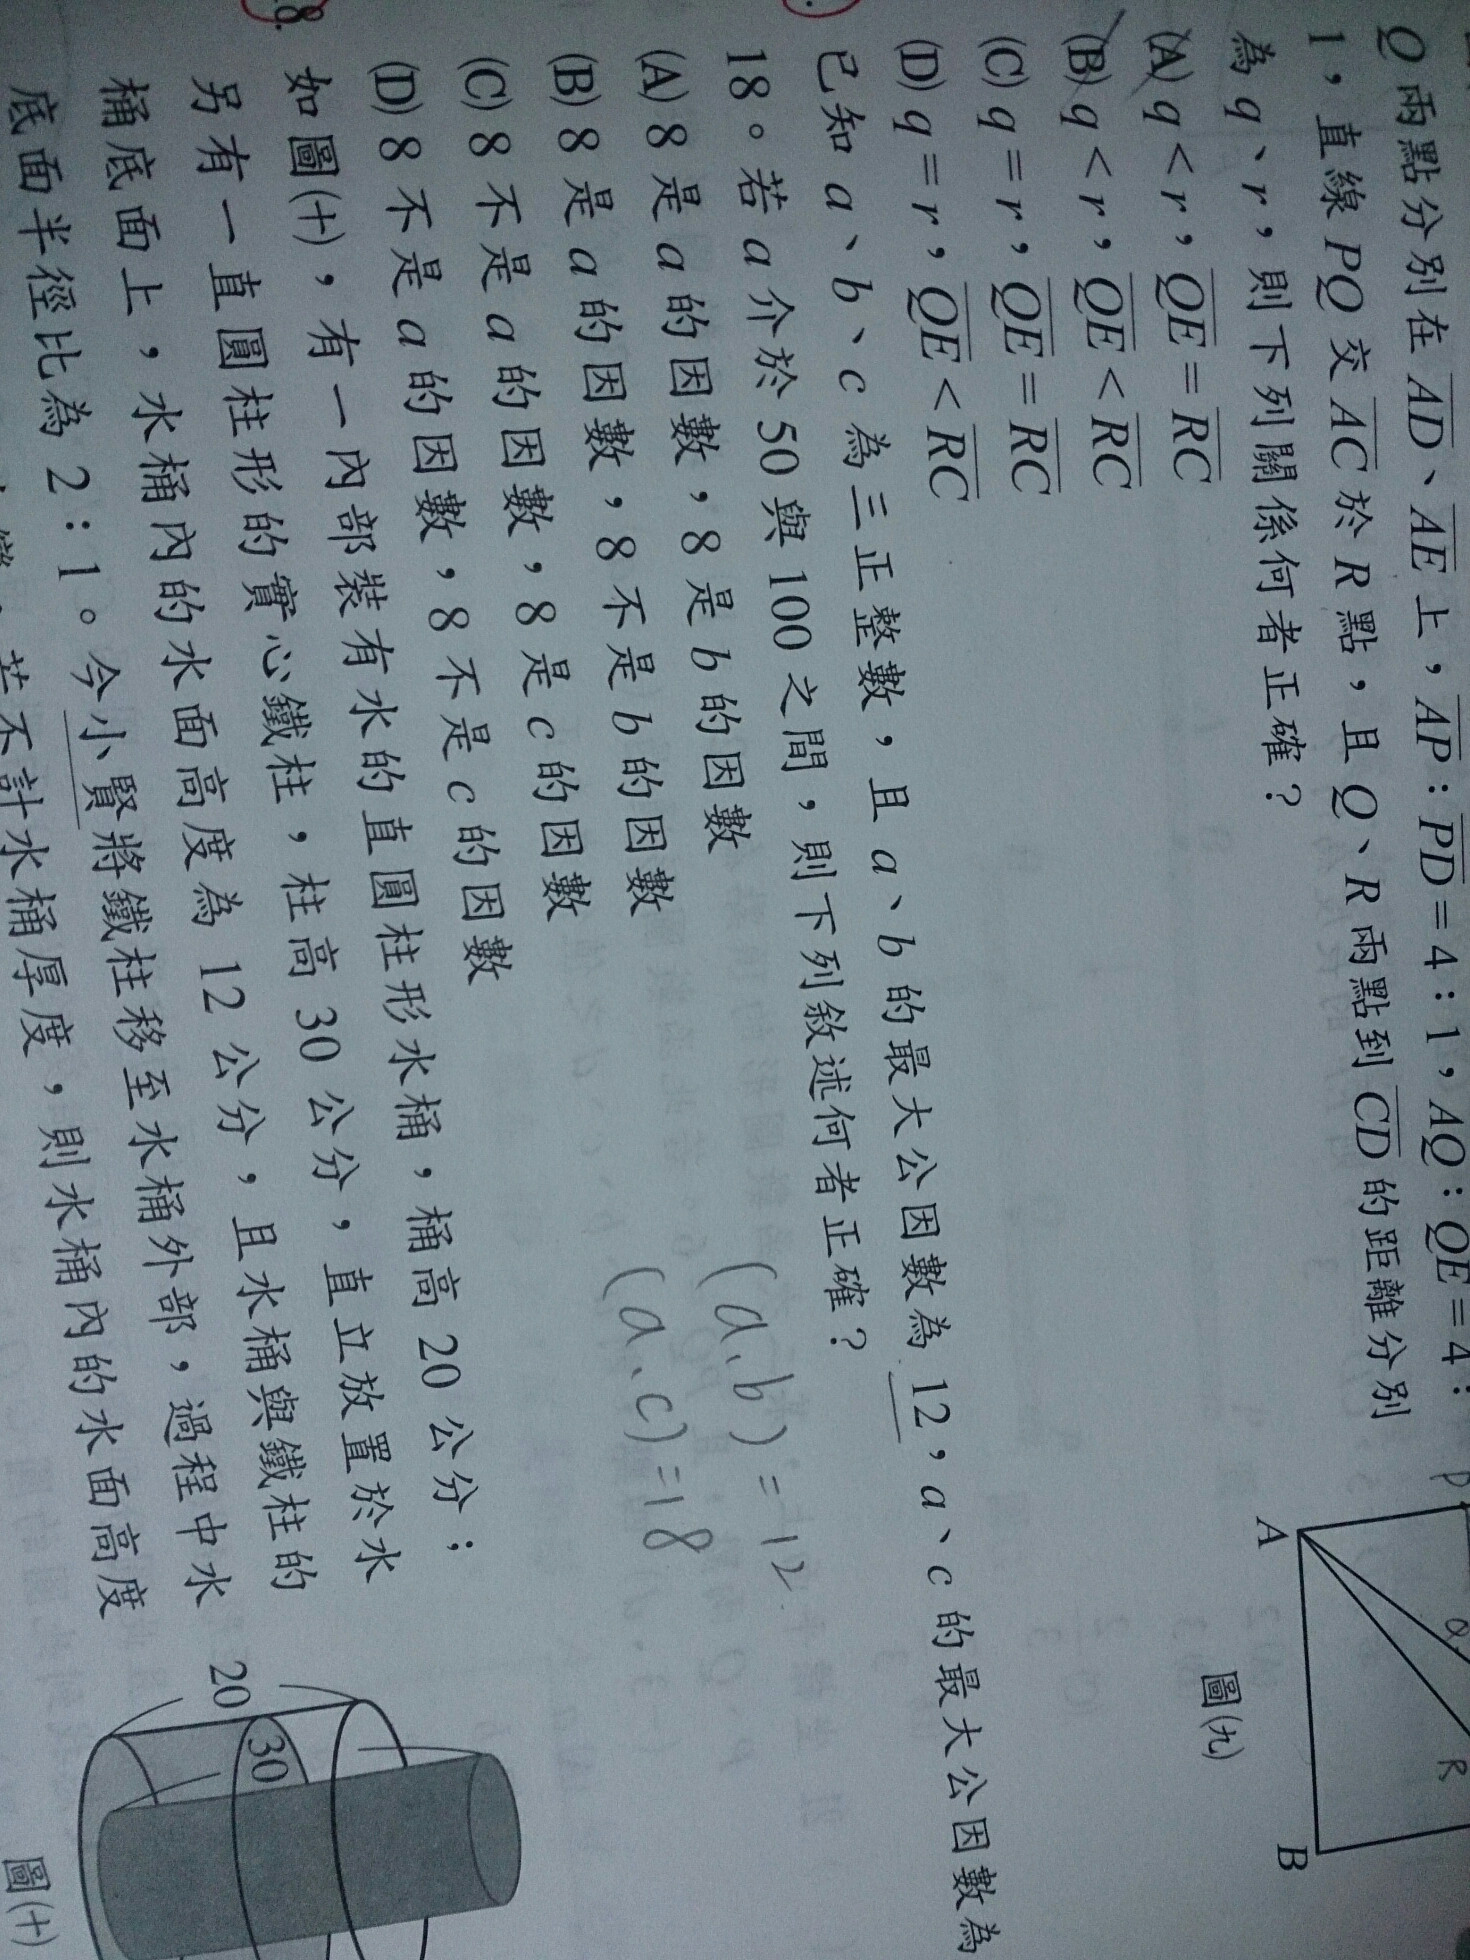 Q兩點分別在AD、AE上，AP：PD＝4：1，AQ：QE＝4：
1，直線PQ交AC於R點，且Q、R兩點到CD的距離分別
為q、r，則下列關係何者正確？
(A) q＜r，QE＝RC
(B) q＜r，QE＜RC
(C) q＝r，QE＝RC
(D) q＝r，QE＜RC
A
B
R
圖(九)
已知a、b、c為三正整數，且a、b的最大公因數為12，a、c的最大公因數為
18。若a介於50與100之間，則下列敘述何者正確？
(A) 8是a的因數，8是b的因數
(B) 8是a的因數，8不是b的因數
(C) 8不是a的因數，8是c的因數
(D) 8不是a的因數，8不是c的因數
(a、b)=12
(a、c)=18
8.
如圖(十)，有一內部裝有水的直圓柱形水桶，桶高20公分；
另有一直圓柱形的實心鐵柱，柱高30公分，直立放置於水
桶底面上，水桶內的水面高度為12公分，且水桶與鐵柱的
底面半徑比為2：1。今小賢將鐵柱移至水桶外部，過程中水
若不計水桶厚度，則水桶內的水面高度
20
30
圖(十)